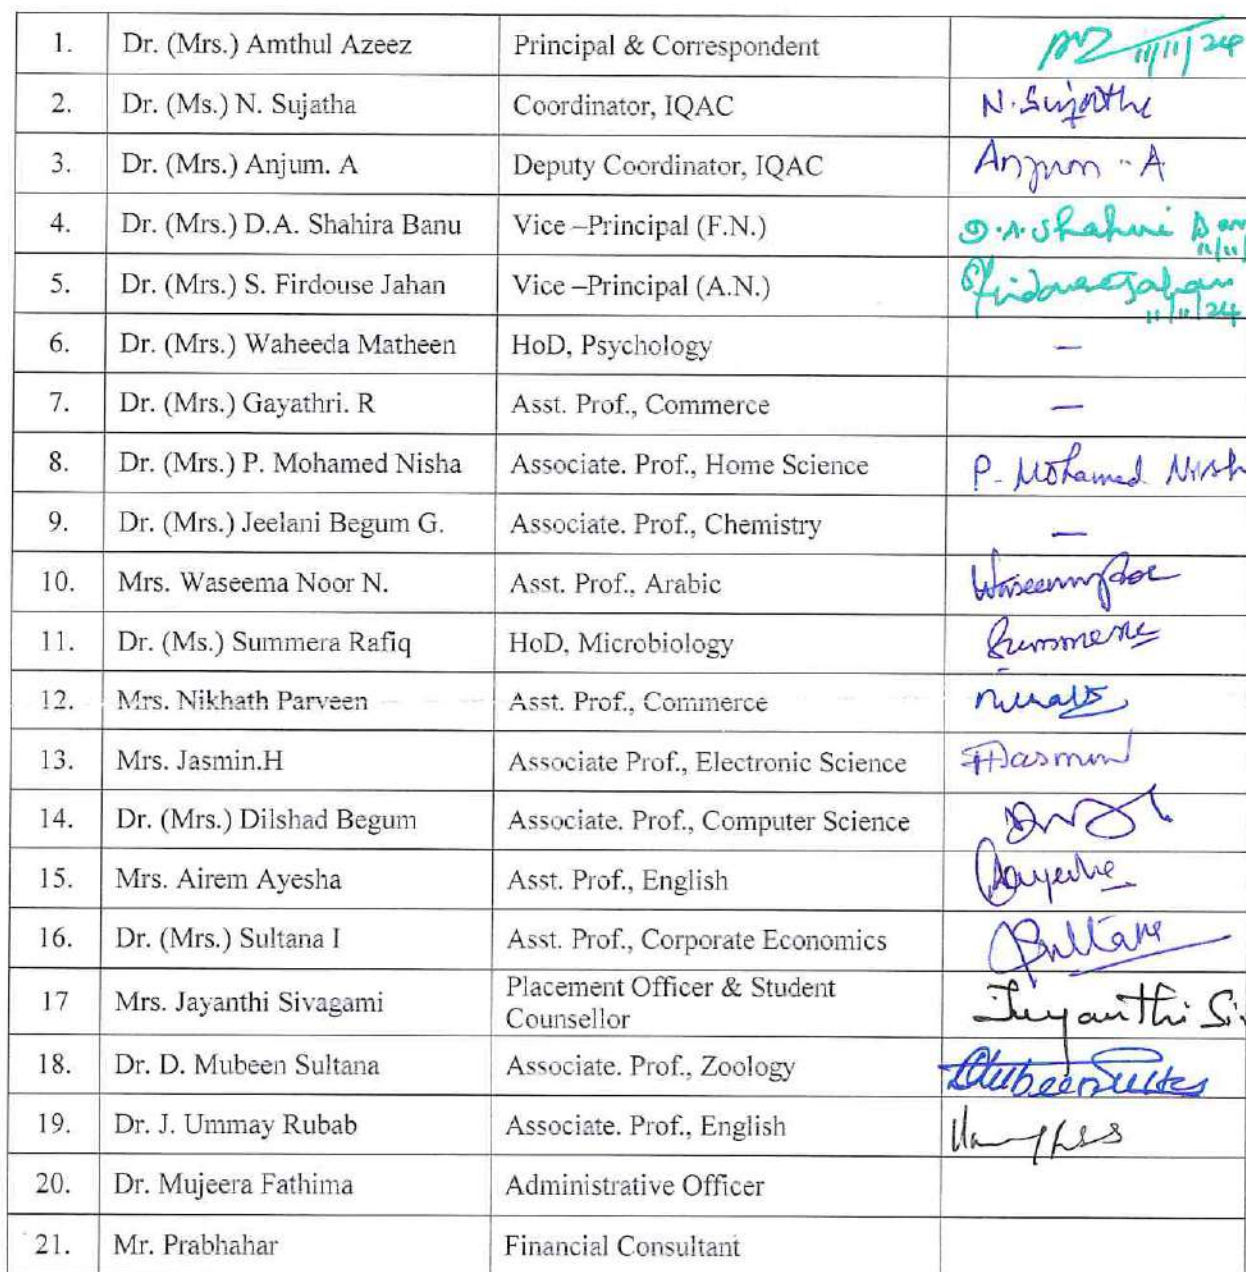 1. Dr. (Mrs.) Amthul Azeez Principal & Correspondent 11/11/24
2. Dr. (Ms.) N. Sujatha Coordinator, IQAC N. Sujatha
3. Dr. (Mrs.) Anjum. A Deputy Coordinator, IQAC Anjum - A
4. Dr. (Mrs.) D.A. Shahira Banu Vice –Principal (F.N.) D.A. Shahira Ban
11/11/
5. Dr. (Mrs.) S. Firdouse Jahan Vice –Principal (A.N.) S. Firdouse Jahan
11/11/24
6. Dr. (Mrs.) Waheeda Matheen HoD, Psychology –
7. Dr. (Mrs.) Gayathri. R Asst. Prof., Commerce –
8. Dr. (Mrs.) P. Mohamed Nisha Associate. Prof., Home Science P. Mohamed Nish
9. Dr. (Mrs.) Jeelani Begum G. Associate. Prof., Chemistry –
10. Mrs. Waseema Noor N. Asst. Prof., Arabic
11. Dr. (Ms.) Summera Rafiq HoD, Microbiology Summera
12. Mrs. Nikhath Parveen Asst. Prof., Commerce
13. Mrs. Jasmin.H Associate Prof., Electronic Science H Jasmin
14. Dr. (Mrs.) Dilshad Begum Associate. Prof., Computer Science
15. Mrs. Airem Ayesha Asst. Prof., English Aayesha
16. Dr. (Mrs.) Sultana I Asst. Prof., Corporate Economics Sultana
17 Mrs. Jayanthi Sivagami Placement Officer & Student
Counsellor Jayanthi Si
18. Dr. D. Mubeen Sultana Associate. Prof., Zoology
19. Dr. J. Ummay Rubab Associate. Prof., English
20. Dr. Mujeera Fathima Administrative Officer
21. Mr. Prabhahar Financial Consultant